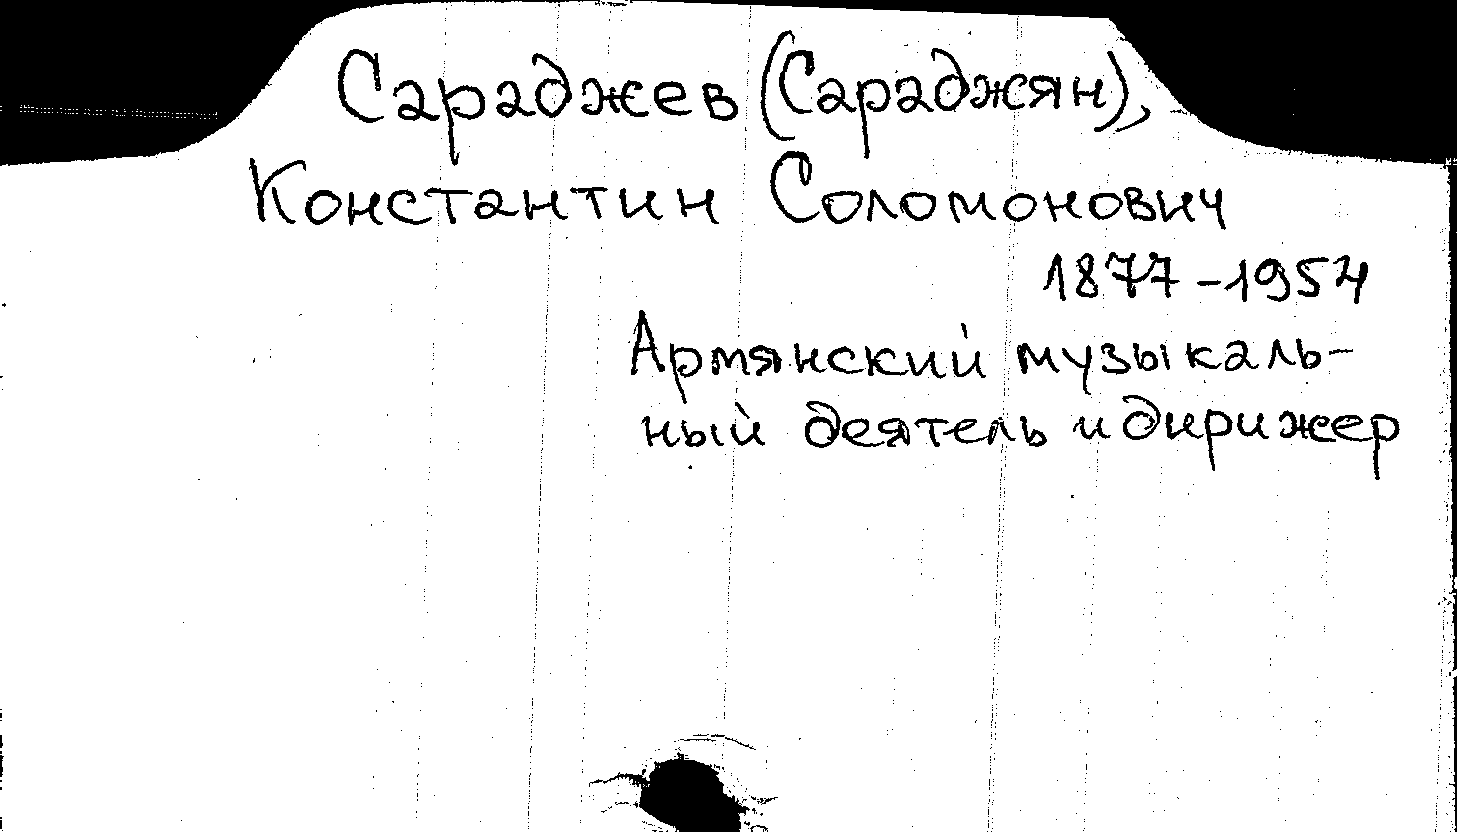 Сараджев (Сараджян),
Константин Соломонович
1877-1954
Армянский музыкаль-
ный деятель и дирижер